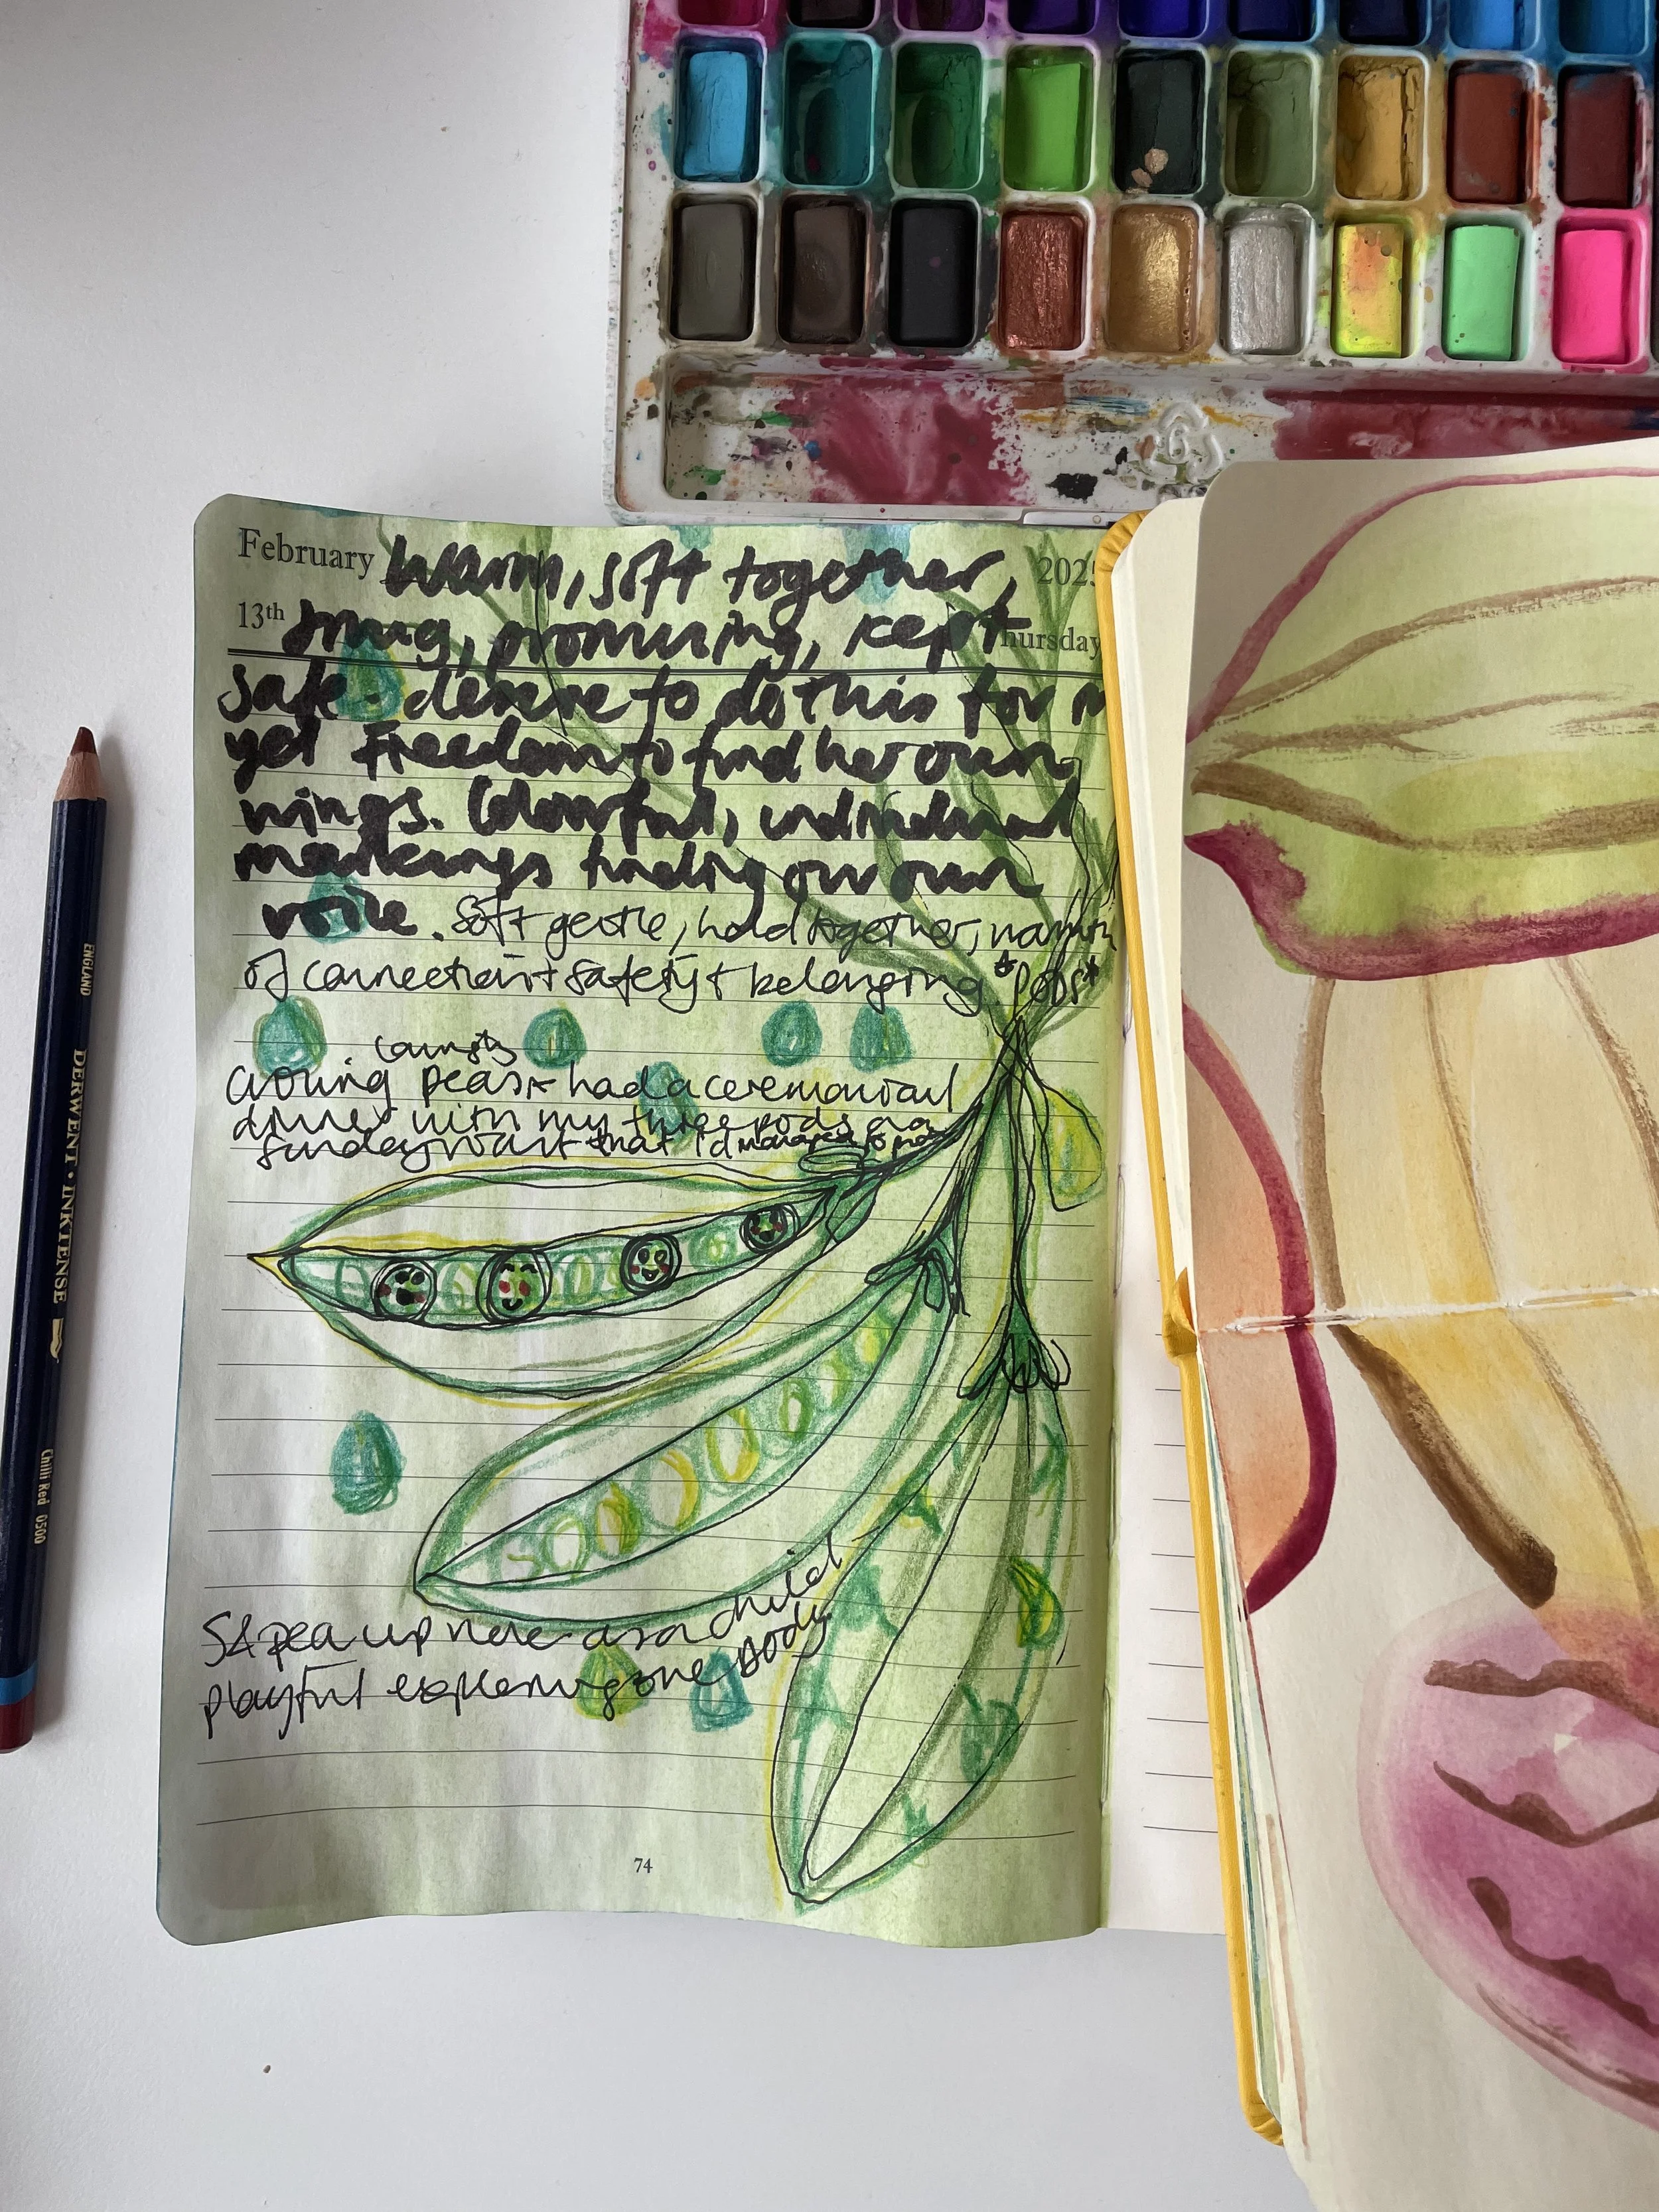 February Warm, soft together, 2025
13th snug, promising, kept Thursday
safe. desire to do this for
yet Freedom to find her own
wings. Colourful, individual
markings finding our own
voice. Soft gentle, hold together, warmth
of connection + safety + belonging *Pods*
peas + had a ceremonial
dinner with my three pods on a
Sunday that I'd managed to
pea up here as a child
playful exploring one body
74
ENGLAND
DERWENT • INKTENSE
Chilli Red 0500